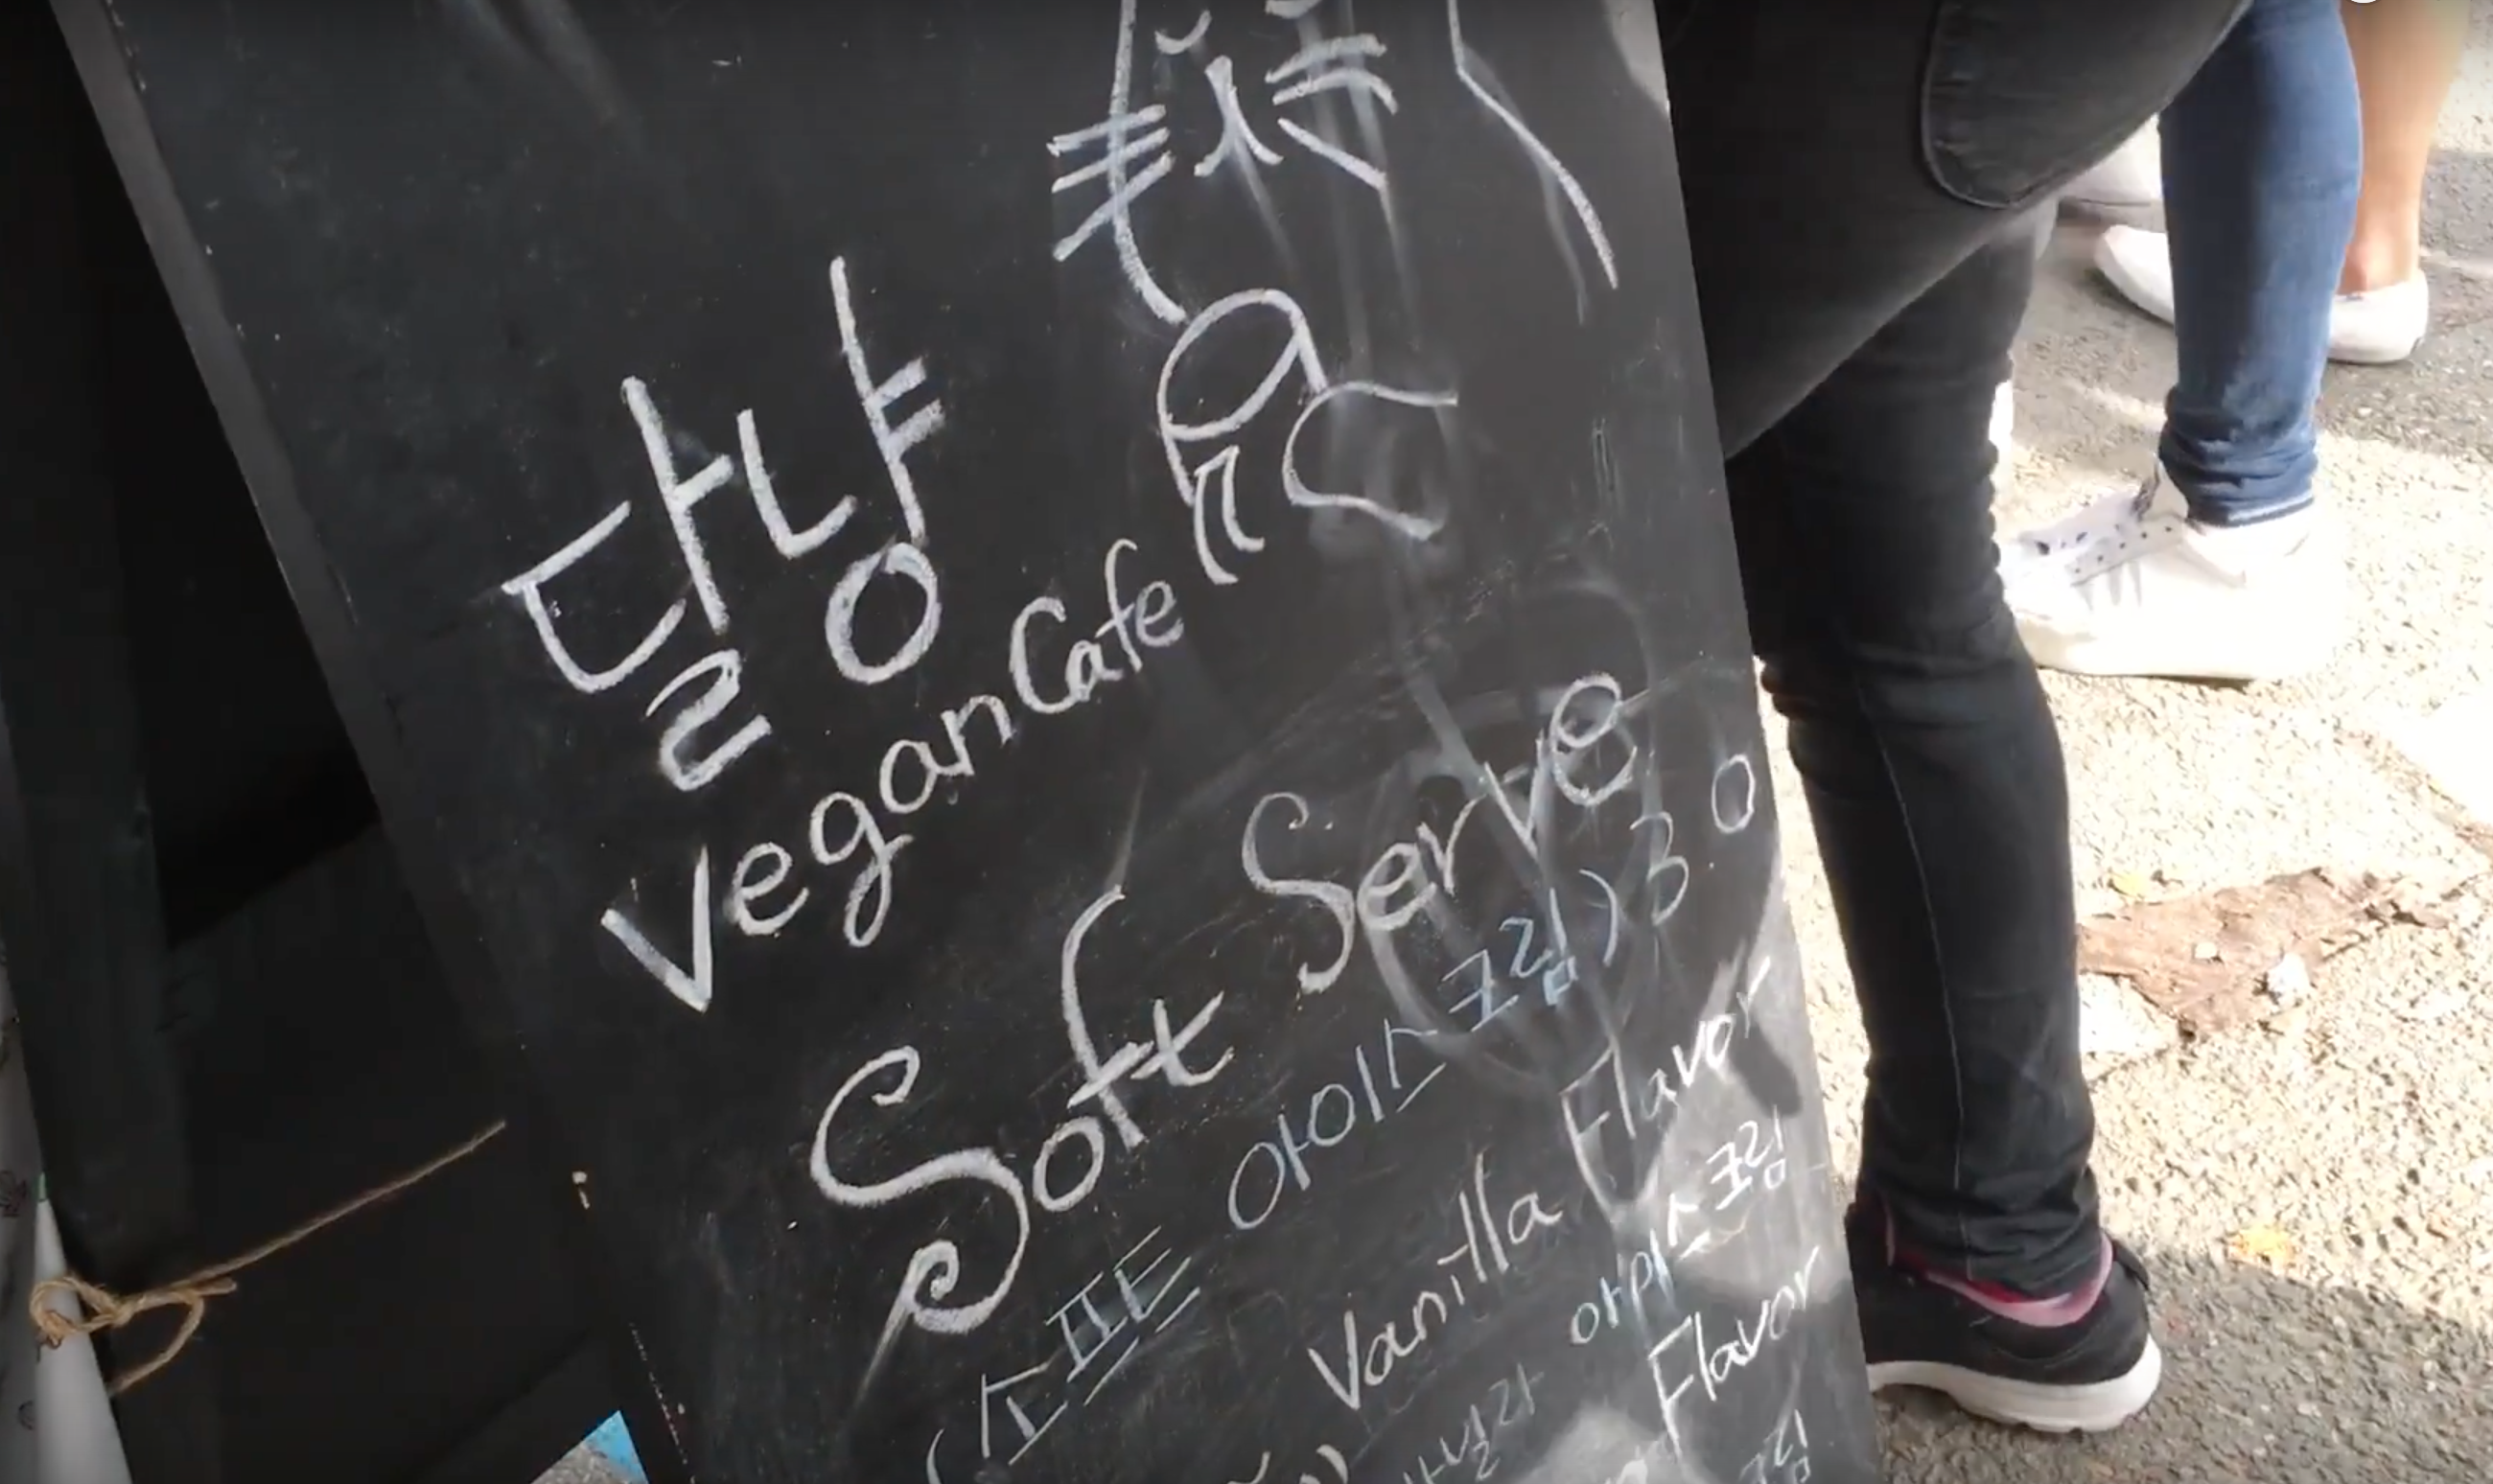 달냥
Vegan Cafe
Soft Serve
(소프트 아이스크림)
Vanilla Flavor
바닐라 아이스크림
Flavor